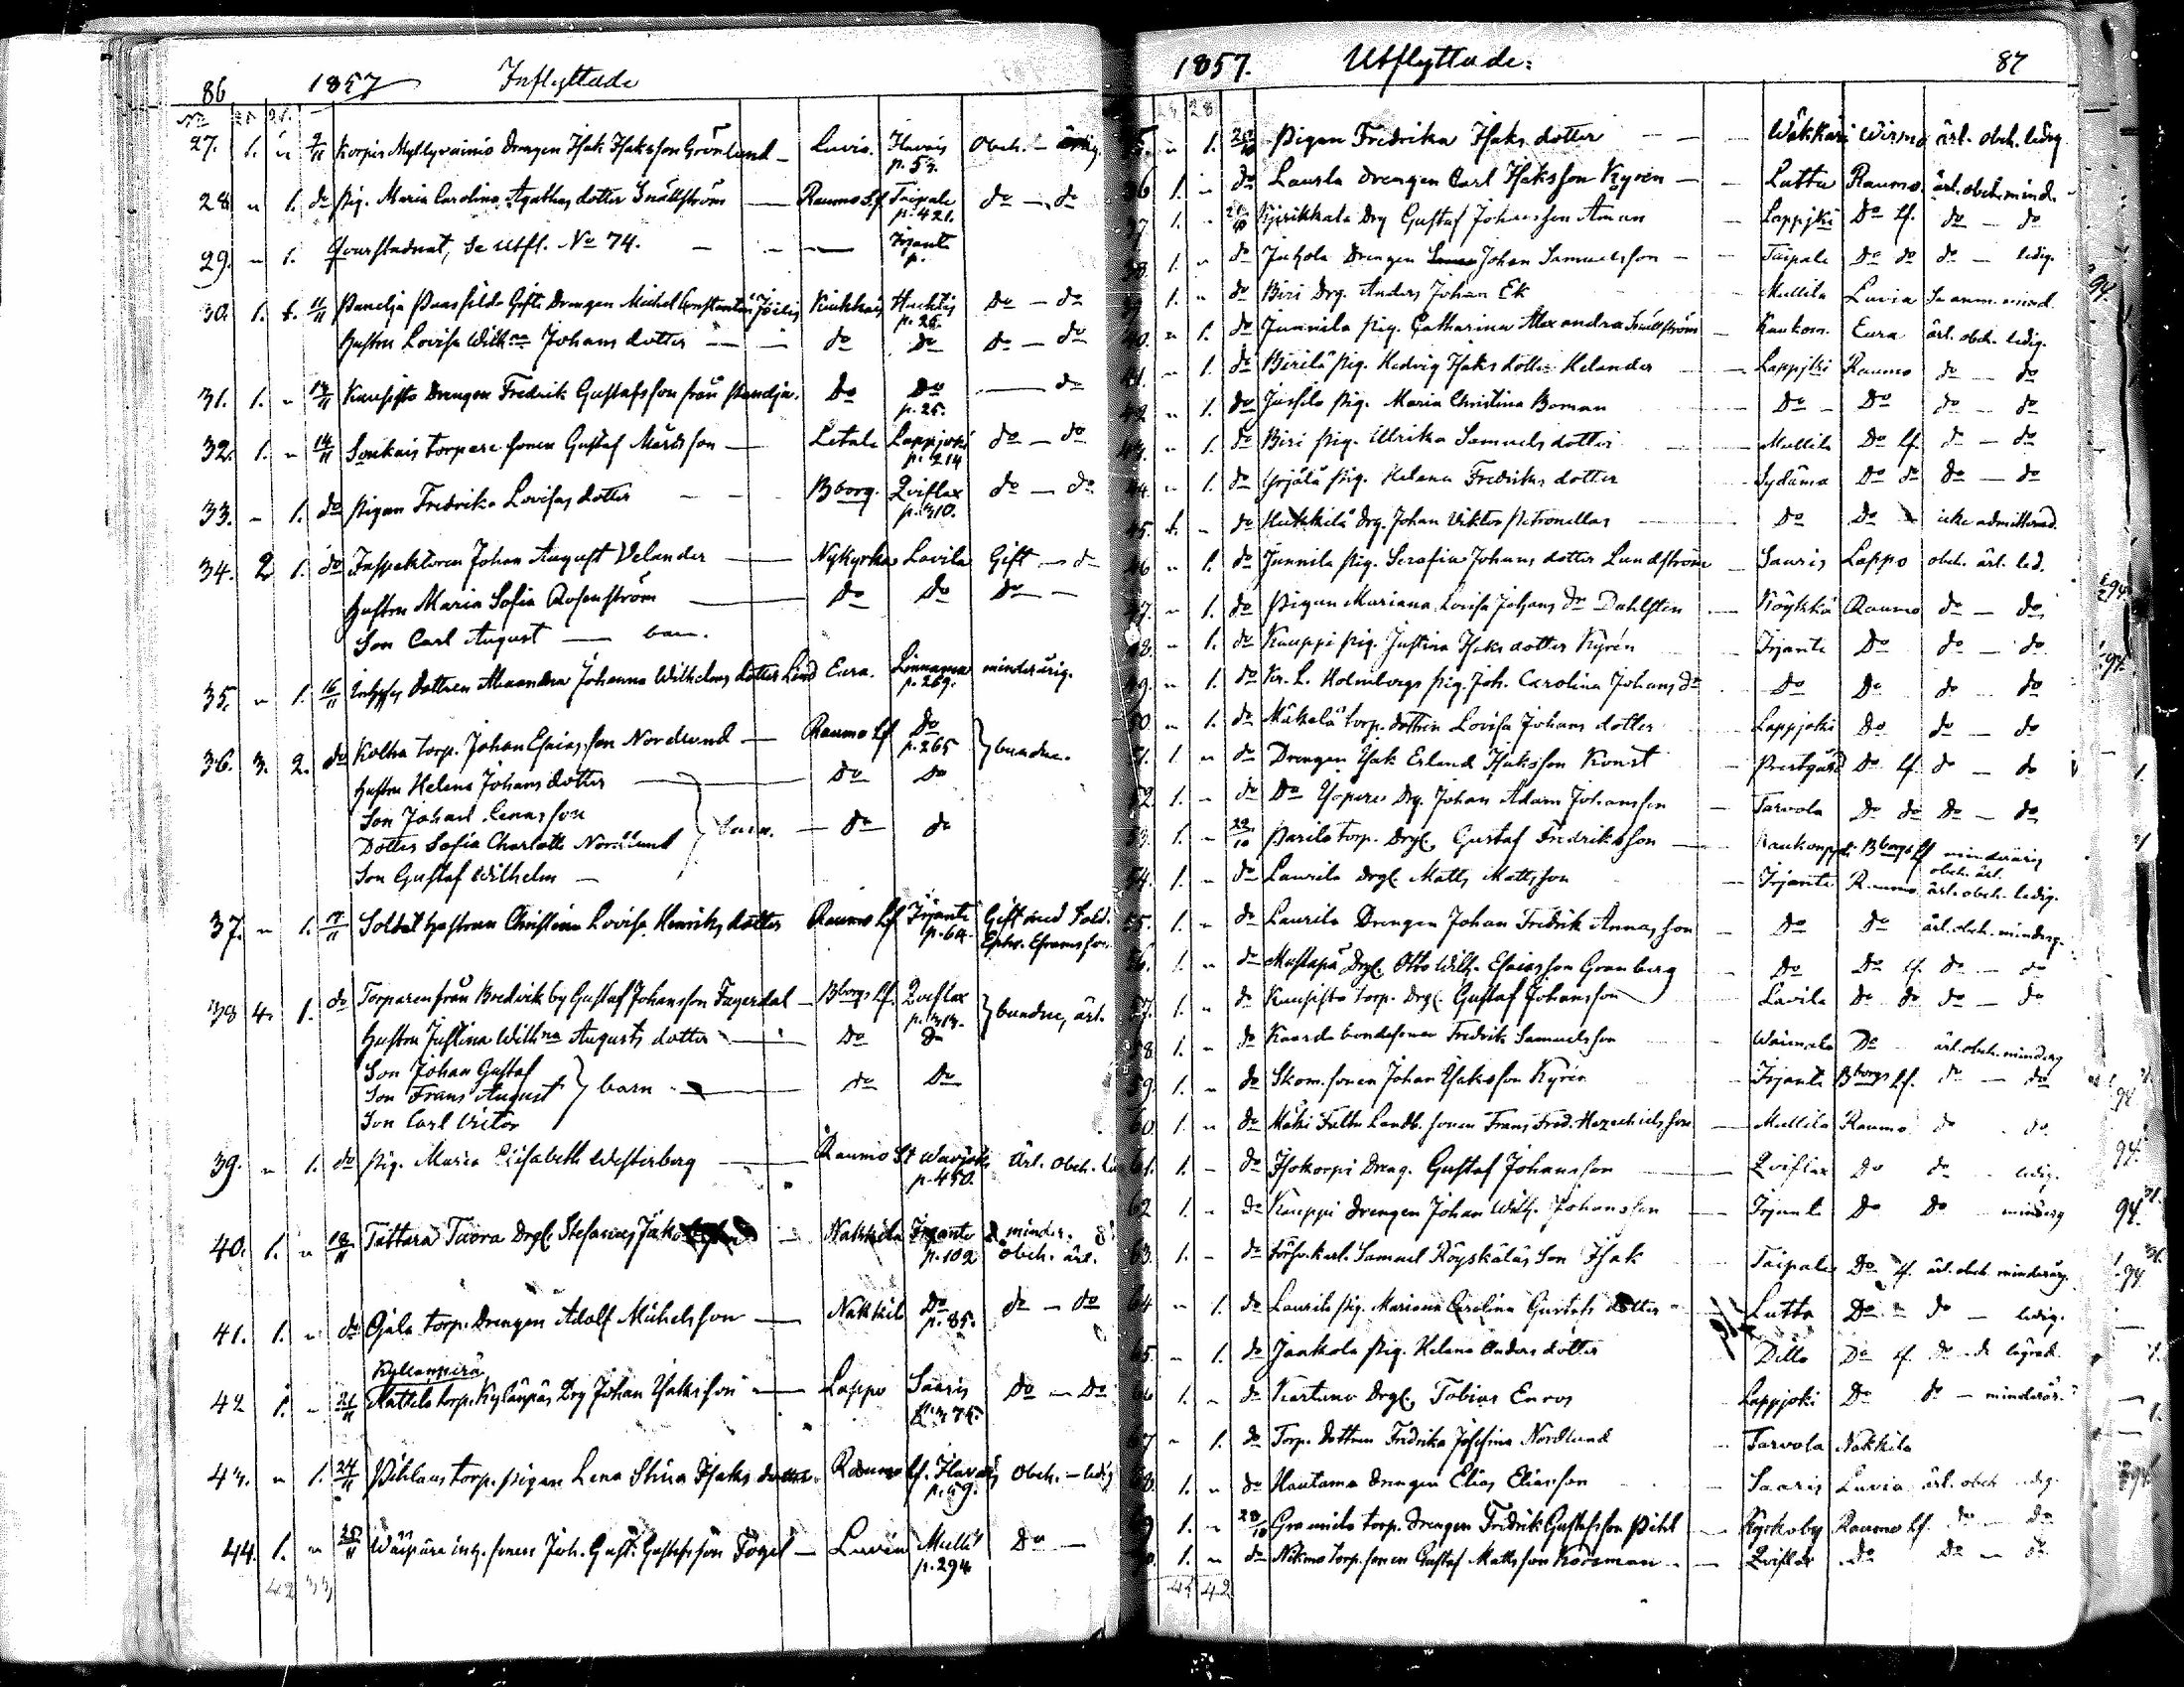 86 1857 Inflyttade
No
27. 1. " 9/11 Korpis Myllyvainio Drengen Isak Isaksson Grönlund — Luvia. Ilavais Obeh. —
p. 53.
28 " 1. do Pig. Maria Carolina Agathas dotter Snällström — Raumo Lf Taipale do — do
p. 421.
29. " 1. Qvarstadnat, Se Utfl. No 74. — — — Irjante
p.
30. 1. 1. 11/11 Panelja Gifte Drengen Michel Constantin Kiukkais Huchtis Do — do
p. 25.
Hustru Lovisa Wilhna Johans dotter — — do Do Do — do
31. 1. " 14/11 Kausisto Drengen Fredrik Gustafsson från Panelja. Do Do — do
p. 25.
32. 1. " 14/11 Soukais torpare sonen Gustaf Mårtsson — Letala Lappjoki do — do
p. 214
33. - 1. do Pigan Fredrika Lovisas dotter — — Bborg. Qviflax do — do
p. 310.
34. 2 1. do Inspektoren Johan August Velander — Nykyrka Lavila Gift — d
Hustru Maria Sofia Rosenström — Do Do Do —
Son Carl August — barn.
35. " 1. 16/11 Inhyses dottren Alexandra Johanna Wilhelms dotter Lind Eura. Linnamaa minderårig.
p. 269.
36. 3. 2. do Kolha torp. Johan Esaiasson Nordlund — Raumo Lf Do } bundne.
p. 265
Hustru Helena Johans dotter — do do
Son Johan
Dotter Sofia Charlotta Nordlund } barn. — do do
Son Gustaf Wilhelm —
37. " 1. 17/11 Soldat hustrun Christina Lovisa Henriks dotter Raumo Lf Irjante Gift med Sold.
p. 64. Ephr. Efraimsson
38 4. 1. do Torparen från Bredvik by Gustaf Johansson Fagerdal — Bborgs Lf. Qviflax } bundne, ärl.
p. 313.
Hustru Justina Wilhna Augusts dotter — Do Do
Son Johan Gustaf
Son Frans August } barn — do Do
Son Carl Victor
39. " 1. do Pig. Maria Elisabeth Westerberg — Raumo St Warjoki Ärl. Obeh.
p. 450.
40. 1. " 18/11 Tattara Tuora Drgl. Stefanus — Nakkila Irjante minder.
p. 102 obeh. ärl.
41. 1. " do Ojala torp. Drengen Adolf Michelsson — Nakkil Do do — do
p. 85.
Kyllänpää
42 1. " 21/11 Kattelo torp. Kylänpäs Drg Johan Isaksson — Lappo Saaris do — Do
p. 375.
43. " 1. 24/11 Pihlaus torp. pigan Lena Stina Isaks dotter Raumo Lf. Ilavais Obeh. — ledig
p. 59.
44. 1. " 25/11 Wäipäre inh. sonen Joh. Gust. Gustafsson Fogel — Luvia Mullil Do —
p. 294
42 33
1857. Utflyttade: 87
23 28
35. " 1. Pigan Fredrika Isaks dotter — — Wäkkärä Wirmo ärl. obeh. ledig
36 1. " do Laurla Drengen Carl Isaksson Kyrén — — Lutta Raumo. ärl. obeh. mind.
37 1. " Kyrikkala Drg Gustaf Johansson Aman — Lappjki Do Lf. do — do
38. 1. " do Juhola Drengen Johan Samuelsson — — Taipale Do do do — ledig.
39 1. " do Biri Drg. Anders Johan Ek Mullila Luvia
40. " 1. do Junnila Pig. Catharina Alexandra Snällström — Kaukom. Eura ärl. obeh. ledig.
41. " 1. do Birilä Pig. Hedvig Isaks dotter Helander — Lappjki Raumo do — do
42 " 1. do Jussila Pig. Maria Christina Boman Do — Do do — do
43. " 1. do Biri Pig. Ulrika Samuels dotter Mullila Do Lf. do — do
44. " 1. do Yrjälä Pig. Helena Fredriks dotter Sydänma Do do do — do
45. 1. " do Heikkilä Drg. Johan Viktor Petronellas Do Do icke admitterad.
46 " 1. do Junnila Pig. Serafia Johans dotter Lundström — Sauris Lappo obeh. ärl. led.
47. " 1. do Pigan Mariana Lovisa Johans dr Dahlsten — Köykkä Raumo do — do
48. " 1. do Kauppi Pig. Justina Isaks dotter Kyrén Irjante Do do — do
49. " 1. do Kr. L. Holmbergs Pig. Joh. Carolina Johans dr Do Do do — do
50 " 1. do Mäkelä torp. dottren Lovisa Johans dotter Lappjoki Do do — do
51. 1. " do Drengen Isak Erland Isaksson Konst — Prestgård Do Lf. do — do
52. 1. " do Do Drg. Johan Adam Johansson — Tarvola Do do Do — do
53. 1. " 22/10 Parila torp. Drgl. Gustaf Fredriksson — Bborgs Lf minderårig
obeh. ärl.
54. 1. " do Laurila Drgl. Matts Mattsson — Irjante Raumo ärl. obeh. ledig.
55. 1. " do Laurila Drengen Johan Fredrik Annasson Do do ärl. obeh. minderg.
56. 1. " do Mustapä Drgl. Otto Wilh. Esaiasson Granberg — Do Do Lf. do — do
57. 1. " do Kausisto torp. Drgl. Gustaf Johansson Lavila do do do — do
58. 1. " do Kaarda bondesonen Fredrik Samuelsson Do ärl. obeh. minderg
59. 1. " do Skom. sonen Johan Isaksson Kyrén Irjante Bborgs Lf. do — do
60. 1. " do Mäki Landb. sonen Frans Fred. Hezechielsson — Mullila Raumo do do
61. 1. - do Isokorpi Dreng. Gustaf Johansson — Qviflax do do ledig.
62 1. " do Kauppi Drengen Johan Wilh. Johansson — Irjante Do Do minderg
63. 1. - do Samuel Röyskäläs Son Isak Taipale Do Lf. ärl. obeh. minderårg.
64 " 1. do Laurila Pig. Mariana Carolina Gustafs dotter Lutta Do do — ledig.
65. " 1. do Jaakola Pig. Helena Anders dotter Dello Do Lf. do do lägrad.
66 1. " do Kartuno Drgl. Tobias Enros Lappjoki Do do — minderår.
67 " 1. do Torp. dottren Fredrika Josefina Nordlund Tarvola Nakkila
68. 1. " do Hautama Drengen Elias Eliasson Saaris Luvia ärl. obeh ledg.
69 1. " 28/10 Grannila torp. Drengen Fredrik Gustafsson Pihl — Kyrkoby Raumo Lf. do — do
70. 1. " do torp. sonen Gustaf Mattsson — Qviflax do Do — do
45 42